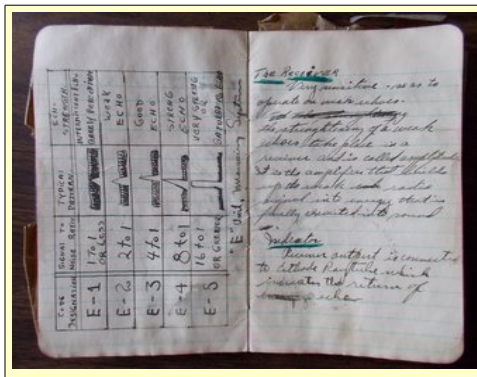 CODE DESIGNATION SIGNAL TO NOISE RATIO TYPICAL PATTERN ECHO STRENGTH
E-1 1 to 1 OR LESS BARELY
E-2 2 to 1 WEAK ECHO
E-3 4 to 1 GOOD ECHO
E-4 8 to 1 STRONG ECHO
E-5 16 to 1 OR GREATER VERY STRONG OR
"E" Unit Measuring System
The Receiver
Very sensitive - so as to
operate on weak echoes.
the strengthening of a weak
echoes takes place is a
receiver and is called amplitude
it is the amplifier that builds
up the weak radio
signal into energy that is
finally converted into sound
Indicator
Receiver output is connected
to Cathode Ray tube which
indicates the return of
echo